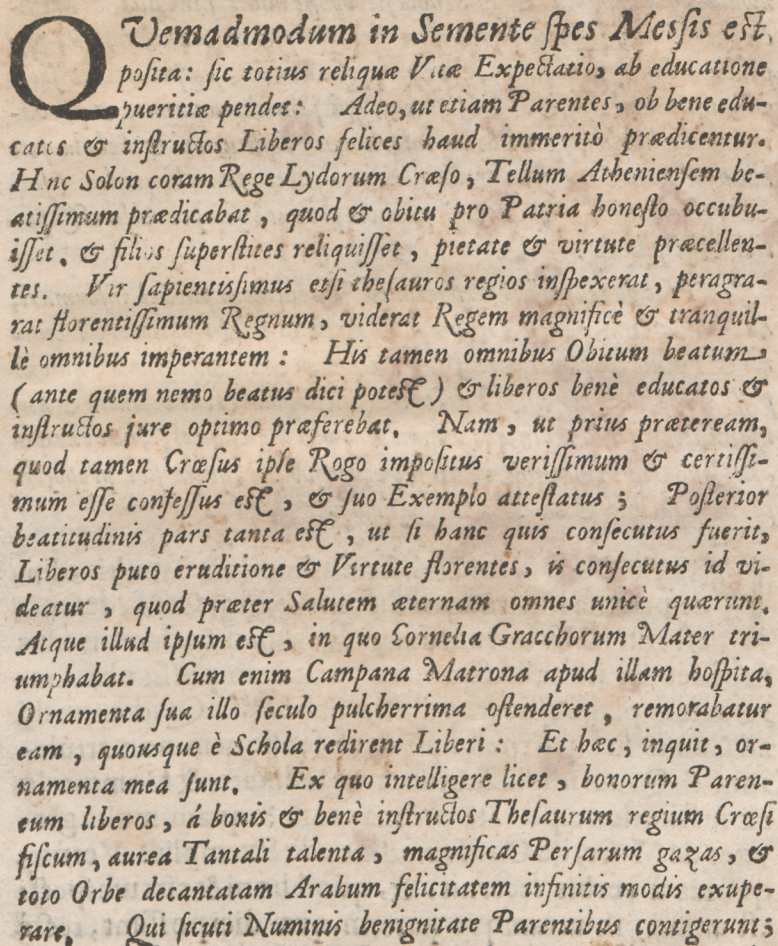 QVemadmodum in Semente ſpes Meſsis eſt
poſita: ſic totius reliquæ Vitæ Expectatio, ab educatione
pueritiæ pendet: Adeo, ut etiam Parentes, ob bene edu-
catos & inſtructos Liberos felices haud immeritò prædicentur.
Hinc Solon coram Rege Lydorum Crœſo, Tellum Athenienſem be-
atiſſimum prædicabat, quod & obitu pro Patria honeſto occubu-
iſſet, & filios ſuperſtites reliquiſſet, pietate & virtute præcellen-
tes. Vir ſapientisſimus etſi theſauros regios inſpexerat, peragra-
rat florentiſſimum Regnum, viderat Regem magnificè & tranquil-
lè omnibus imperantem: His tamen omnibus Obitum beatum
(ante quem nemo beatus dici poteſt) & liberos benè educatos &
inſtructos jure optimo præferebat. Nam, ut prius præteream,
quod tamen Crœſus ipſe Rogo impoſitus veriſſimum & certiſſi-
mum eſſe confeſſus eſt, & ſuo Exemplo atteſtatus; Poſterior
beatitudinis pars tanta eſt, ut ſi hanc quis conſecutus fuerit,
Liberos puto eruditione & Virtute florentes, is conſecutus id vi-
deatur, quod præter Salutem æternam omnes unicè quærunt.
Atque illud ipſum eſt, in quo Cornelia Gracchorum Mater tri-
umphabat. Cum enim Campana Matrona apud illam hoſpita,
Ornamenta ſua illo ſeculo pulcherrima oſtenderet, remorabatur
eam, quousque è Schola redirent Liberi: Et hæc, inquit, or-
namenta mea ſunt. Ex quo intelligere licet, bonorum Paren-
tum liberos, á bonis & benè inſtructos Theſaurum regium Crœſi
fiſcum, aurea Tantali talenta, magnificas Perſarum gazas, &
toto Orbe decantatam Arabum felicitatem infinitis modis exupe-
rare. Qui ſicuti Numinis benignitate Parentibus contigerunt;